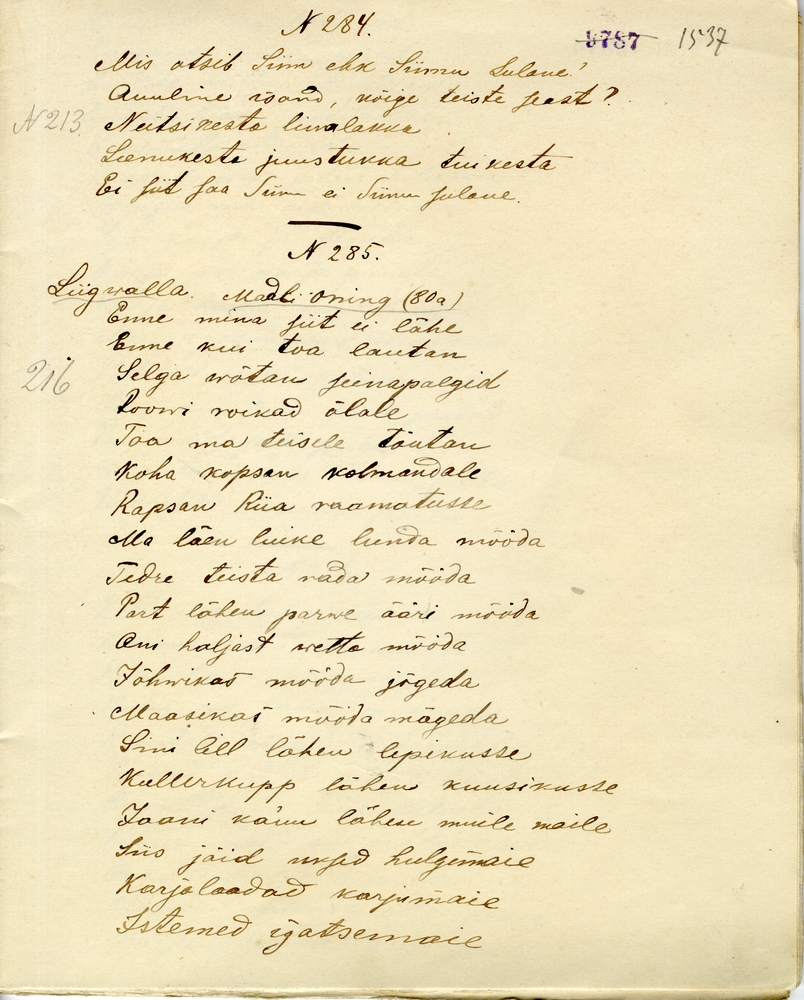 N 284.
9787 1537
Mis otsib Siim ehk Siimu Sulane!
Auuline isand, kõige teiste seast?
N 213. Neitsikesta linalakka
Leenukesta juustukka tuikesta
Ei siit saa Siim ei Siimu sulane.
N 285.
Liigwalla. Madli Oning (80a)
Enne mina siit ei lähe
Enne kui toa lautan
216 Selga wõtan seinapalgid
Roowi roikad õlale
Toa ma teisele tõutan
Koha kopsan kolmandale
Rapsan Riia raamatusse
Ma läen luike lunda mööda
Tedre teista rada mööda
Part lähen parwe ääri mööda
Ani haljast wetta mööda
Jõhwikas mööda jõgeda
Maasikas mööda mägeda
Sini lill lähen lepikusse
Kullerkupp lähen kuusikusse
Jaani käuu lähen muile maile
Siis jäid uksed hulgumaie
Karjalaadad karjumaie
Istemed igatsemaie